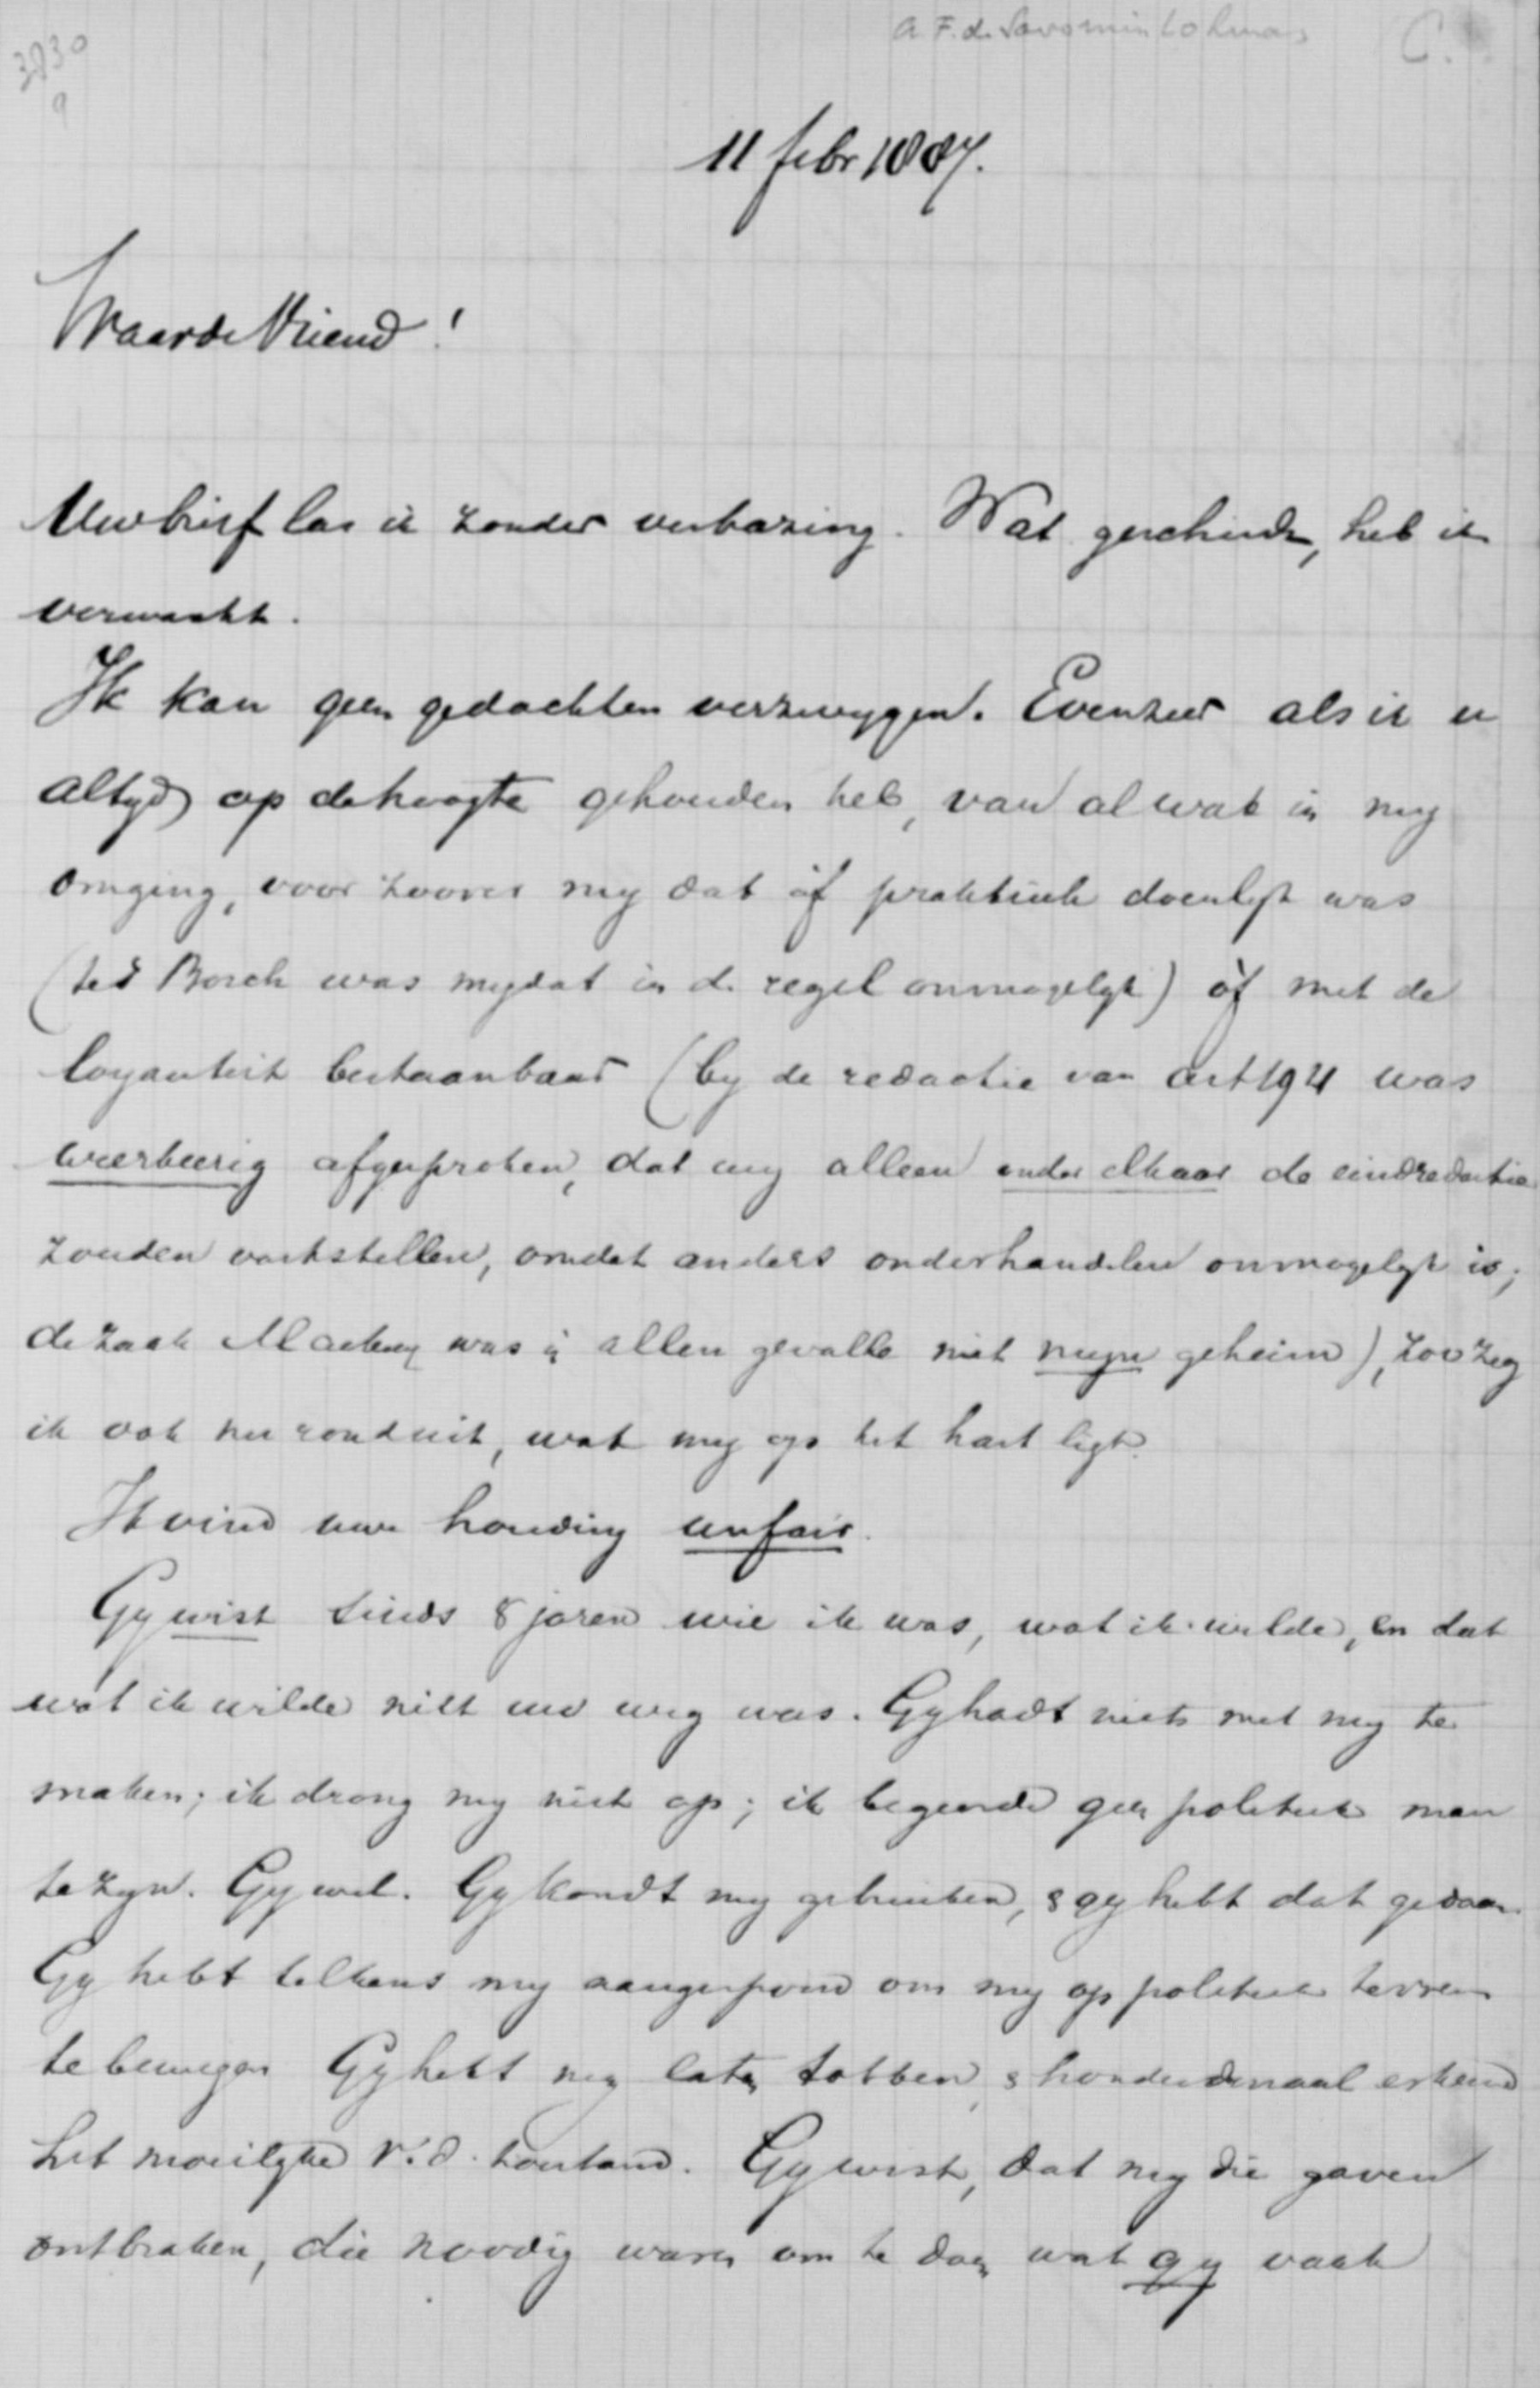 A. F. de Savornin Lohman C.
3830
a
11 febr 1887.
Waarde Vriend!
Uw brief las ik zonder verbazing. Wat geschiedde, heb ik
verwacht.
Ik kan geen gedachten verzwygen. Evenzeer als ik u
altyd op de hoogte gehouden heb, van al wat in my
omging, voor zoover my dat òf praktisch doenlyk was
(ter Borch was my dat in de regel onmogelyk) òf met de
loyauteit bestaanbaar (by de redactie van art 194 was
weerkeerig afgesproken, dat wy alleen onder elkaar de eindredactie
zouden vaststellen, omdat anders onderhandelen onmogelyk is;
de zaak Mackay was in allen gevalle niet myn geheim), zoo zeg
ik ook nu ronduit, wat my op het hart ligt.
Ik vind uw houding unfair.
Gy wist sinds 8 jaren wie ik was, wat ik wilde, en dat
wat ik wilde niet uw weg was. Gy hadt niets met my te
maken; ik drong my niet op; ik begeerde geen politiek man
te zyn. Gy wel. Gy kondt my gebruiken, & gy hebt dat gedaan.
Gy hebt telkens my aangespoord om my op politiek terrein
te bewegen Gy hebt my laten tobben, & honderdmaal erkend
het moeilyke v. d. toestand. Gy wist, dat my die gaven
ontbraken, die noodig waren om te doen wat gy vaak